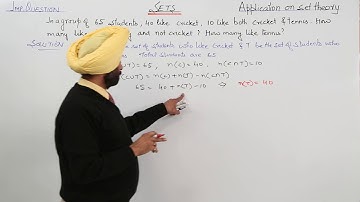 Imp Question SETS Application on set theory
In a group of 65 students, 40 like cricket, 10 like both cricket & tennis. How
many like only and not cricket? How many like tennis?
Solution set of students who like cricket & T be the set of students who
Total students are 65
= 65, n(C) = 40, n(C∩T) = 10
(C∪T) = n(C) + n(T) - n(C∩T)
65 = 40 + n(T) - 10 ⇒ n(T) = 40